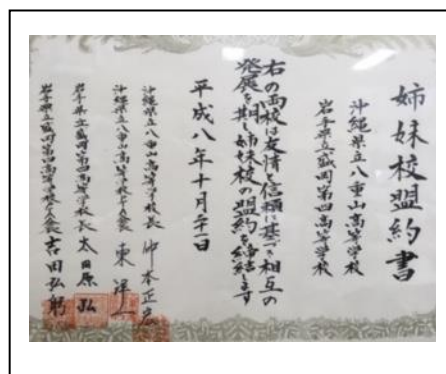 姉妹校盟約書
沖縄県立八重山高等学校
岩手県立盛岡第四高等学校
右の両校は友情と信頼に基づき相互の
発展を期し姉妹校の盟約を締結します
平成八年十月二十一日
沖縄県立八重山高等学校長 仲本正宏
沖縄県立八重山高等学校PTA会長 東洋一
岩手県立盛岡第四高等学校長 太田原弘
岩手県立盛岡第四高等学校PTA会長 吉田弘躬